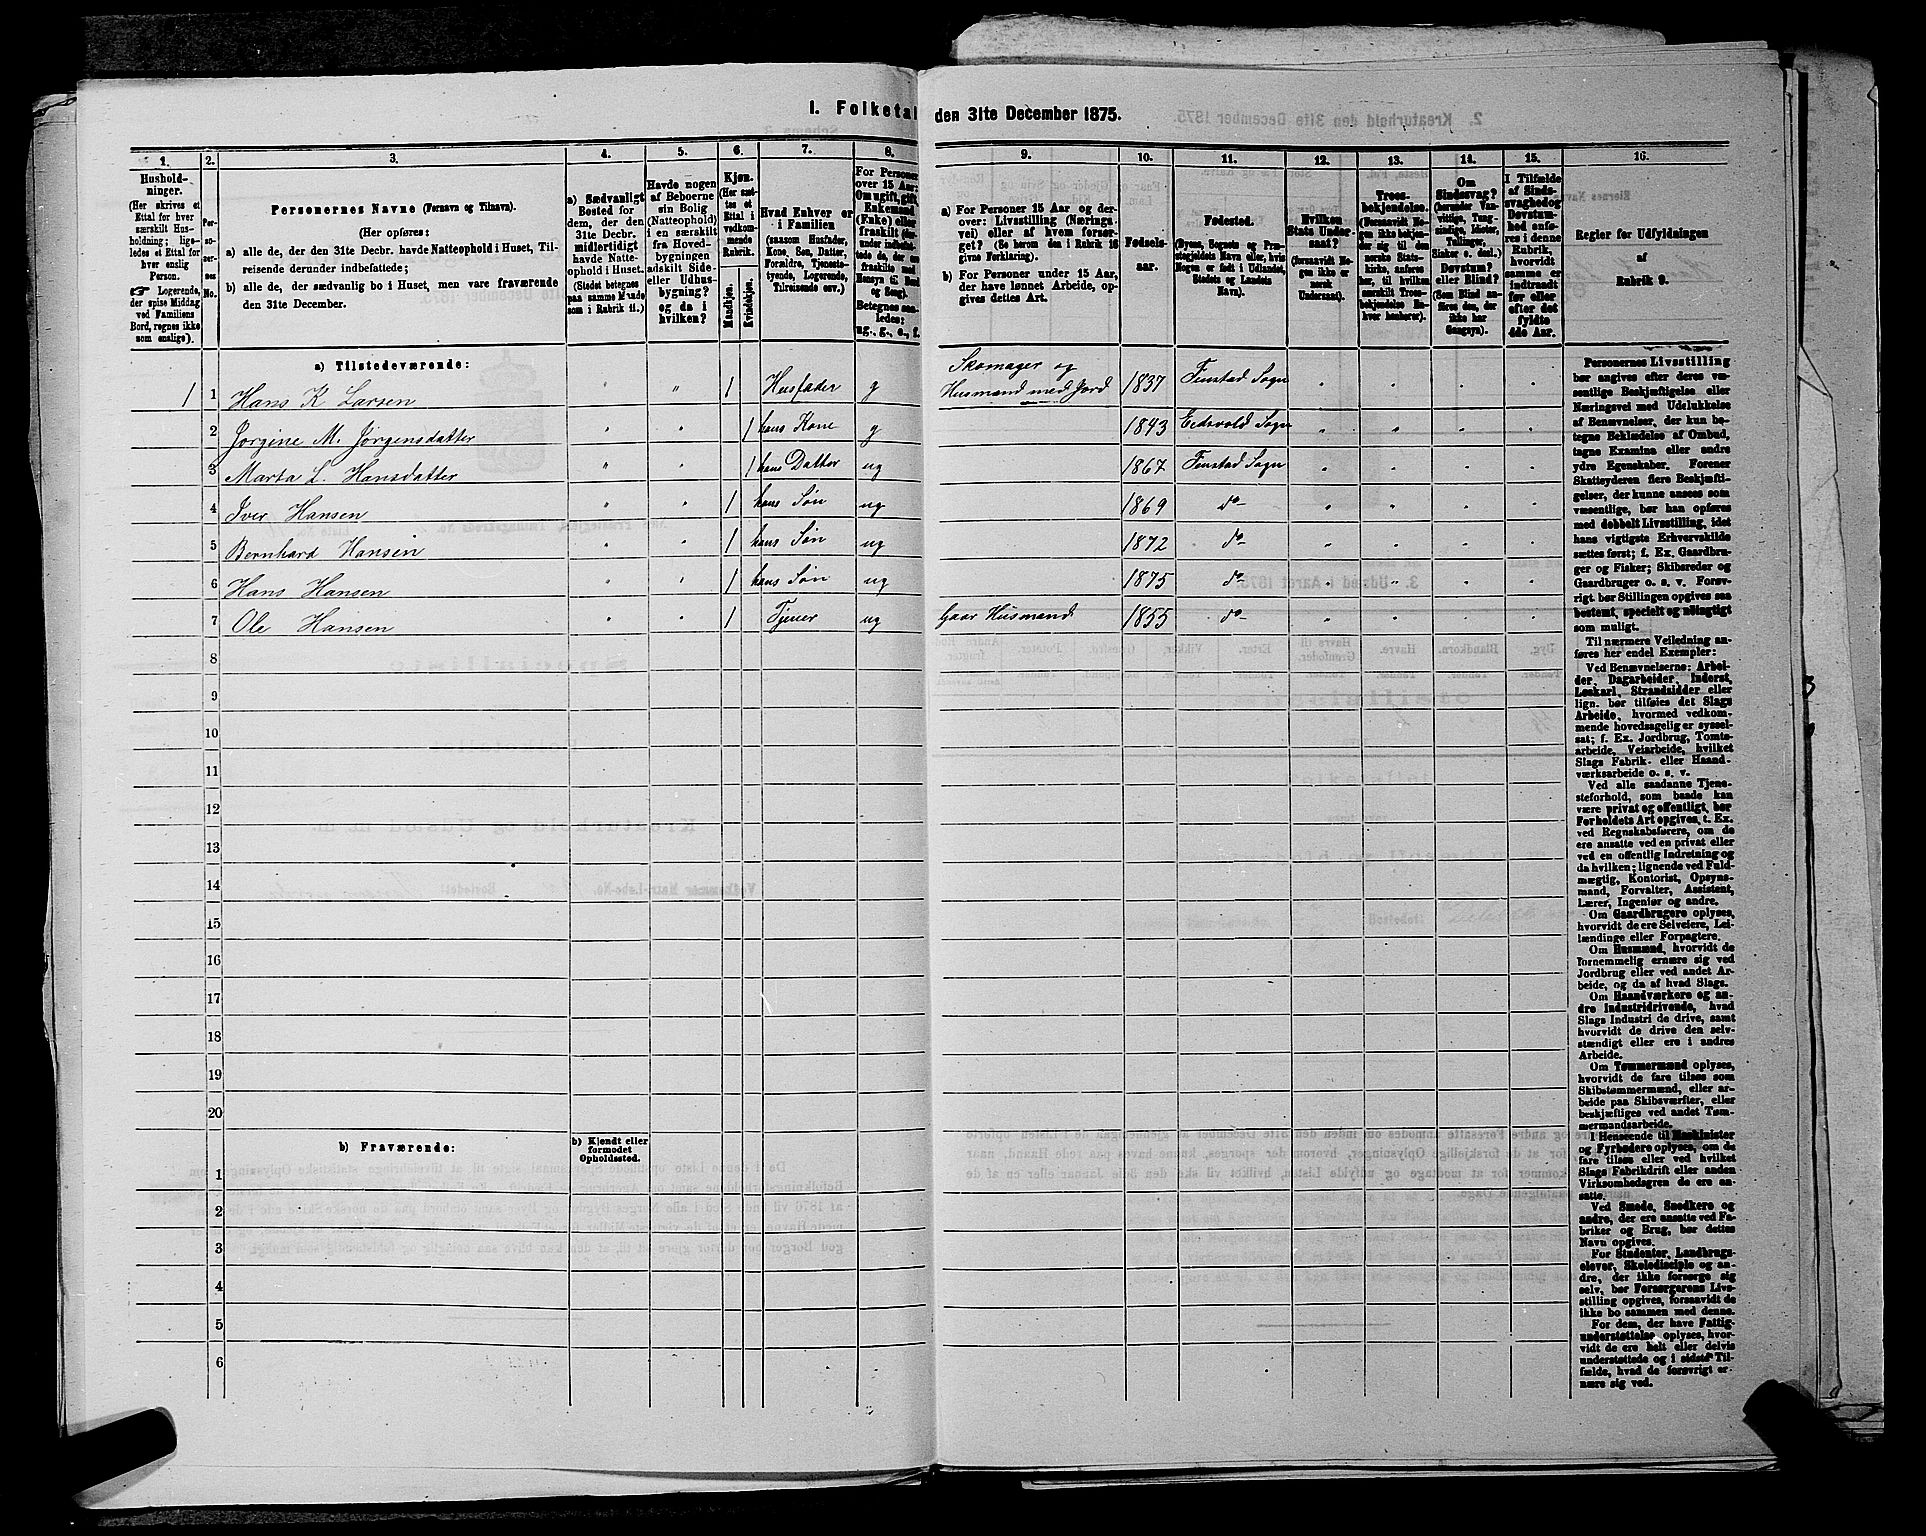 I. Folketal den 31te December 1875.
1. 2. 3. 4. 5. 6. 7. 8. 9. 10. 11. 12. 13. 14. 15. 16.
Hushold-
ninger.
(Her skrives et
Ettal for hver
særskilt Hus-
holdning; lige-
ledes et Ettal for
hver enslig
Person.
☞ Logerende,
der spise Middag
ved Familiens
Bord, regnes ikke
som enslige).
Per-
so-
ner-
nes
No.
Personernes Navne (Fornavn og Tilnavn).
(Her opføres:
a) alle de, der den 31te Decbr. havde Natteophold i Huset, Til-
reisende derunder indbefattede;
b) alle de, der sædvanlig bo i Huset, men vare fraværende
den 31te December.
a) Sædvanligt
Bosted for
dem, der den
31te Decbr.
midlertidigt
havde Natte-
ophold i Huset.
(Stedet betegnes
paa samme Maade
som i Rubrik 11.)
Havde nogen
af Beboerne
sin Bolig
(Natteophold)
i en særskilt
fra Hoved-
bygningen
adskilt Side-
eller Udhus-
bygning?
og da i
hvilken?
Kjøn.
(Her sæt-
tes et
Ettal i
vedkom-
mende
Rubrik.
Mandkjøn.
Kvindekjøn.
Hvad Enhver er
i Familien
(saasom Husfader,
Kone, Søn, Datter,
Forældre, Tjeneste-
tyende, Logerende,
Tilreisende osv.)
For Personer
over 15 Aar:
Om ugift, gift,
Enkemand
(Enke) eller
fraskilt
Betegnes saa-
ledes:
ug., g., e., f.
a) For Personer 15 Aar og der-
over: Livsstilling (Nærings-
vei) eller af hvem forsør-
get? (Se herom den i Rubrik 16
givne Forklaring).
b) For Personer under 15 Aar,
der have lønnet Arbeide, op-
gives dettes Art.
Fødsels-
aar.
Fødested.
(Byens, Sognets og Præ-
stegjeldets Navn eller, hvis
Nogen er født i Udlandet,
Stedets og Landets
Navn).
Hvilken
Stats Under-
saat?
(forsaavidt No-
gen ikke er
norsk
Undersaat).
Troes-
bekjendelse.
(Forsaavidt No-
gen ikke bekjen-
der sig til den
norske Stats-
kirke, anføres
her, til hvilken
særskilt Troes-
bekjendelse En-
hver henhører).
Om
Sindssvag?
(herunder Van-
vittige, Tung-
sindige, Idioter,
Tullinger,
Sinker o. desl.)
Døvstum?
eller Blind?
(Som Blind an-
føres den, der
ikke har
Gangsyn).
I Tilfælde
af Sinds-
svaghed og
Døvstum-
hed anfø-
res i denne
Rubrik,
hvorvidt
samme er
indtraadt
før eller
efter det
fyldte
4de Aar.
Regler for Udfyldningen
af
Rubrik 9.
a) Tilstedeværende:
1 1 Hans K Larsen " " 1 Husfader g Skomager og
Husmand med Jord 1837 Fenstad Sogn " " " "
2 Jørgine M. Jørgensdatter " " 1 hans Kone g 1843 Eidsvold Sogn " " " "
3 Marta L. Hansdatter " " 1 hans Datter ug 1867 Fenstad Sogn " " " "
4 Iver Hansen " " 1 hans Søn ug 1869 do " " " "
5 Bernhard Hansen " " 1 hans Søn ug 1872 do " " " "
6 Hans Hansen " " 1 hans Søn ug 1875 do " " " "
7 Ole Hansen " " 1 Tjener ug Gaar Husmand 1855 do " " " "
8
9
10
11
12
13
14
15
16
17
18
19
20
b) Fraværende:
b) Kjendt eller
formodet
Opholdssted.
1
2
3
4
5
6
Personernes Livsstilling
bør angives efter deres væ-
sentlige Beskjæftigelse eller
Næringsvei med Udelukkelse
af Benævnelser, der kun be-
tegne Beklædelse af Ombud,
tagne Examina eller andre
ydre Egenskaber. Forener
Skatteyderen flere Beskjæfti-
gelser, der kunne ansees som
væsentlige, bør han opføres
med dobbelt Livsstilling, idet
hans vigtigste Erhvervskilde
sættes først; f. Ex. Gaardbru-
ger og Fisker; Skibsreder og
Gaardbruger o. s. v. Forøv-
rigt bør Stillingen opgives saa
bestemt, specielt og nøiagtigt
som muligt.
Til nærmere Veiledning an-
føres her endel Exempler:
Ved Benævnelserne: Arbei-
der, Dagarbeider, Inderst,
Løskarl, Strandsidder eller
lign. bør tilføies det Slags
Arbeide, hvormed vedkom-
mende hovedsagelig er syssel-
sat; f. Ex. Jordbrug, Tomte-
arbeide, Veiarbeide, hvilket
Slags Fabrik- eller Haand-
værksarbeide o. s. v.
Ved alle saadanne Tjene-
steforhold, som baade kan
være privat og offentligt, bør
Forholdets Art opgives, t. Ex.
ved Regnskabsførere, om de
ere ansatte ved en privat eller
ved en offentlig Indretning og
da hvilken; lignende ved Fuld-
mægtig, Kontorist, Opsyns-
mand, Forvalter, Assistent,
Lærer, Ingeniør og andre.
Om Gaardbrugere oplyses,
hvorvidt de ere Selveiere, Lei-
lændinge eller Forpagtere.
Om Husmænd, hvorvidt de
fornemmelig ernære sig ved
Jordbrug eller ved andet Ar-
beide, og da af hvad Slags.
Om Haandværkere og an-
dre Industridrivende, hvad
Slags Industri de drive, samt
hvorvidt de drive den selv-
stændigt eller ere i andres
Arbeide.
Om Tømmermænd oplyses,
hvorvidt de fare tilsøs som
Skibstømmermænd, eller ar-
beide paa Skibsværfter, eller
beskjæftiges ved andet Tøm-
mermandsarbeide.
I Henseende til Maskinister
og Fyrbødere oplyses, om de
fare tilsøs eller ved hvilket
Slags Fabrikdrift eller anden
Virksomhedsgren de ere an-
satte.
Ved Smede, Snedkere og
andre, der ere ansatte ved Fa-
briker og Brug, bør dettes
Navn opgives.
For Studenter, Landbrugs-
elever, Skoledisciple og an-
dre, der ikke forsørge sig
selv, bør Forsørgerens Livs-
stilling opgives, forsaavidt de
ikke bo sammen med denne.
For dem, der have Fattig-
understøttelse, oplyses, hvor-
vidt de ere helt eller delvis
understøttede og i sidste Til-
fælde, hvad de forøvrigt er-
nære sig ved.